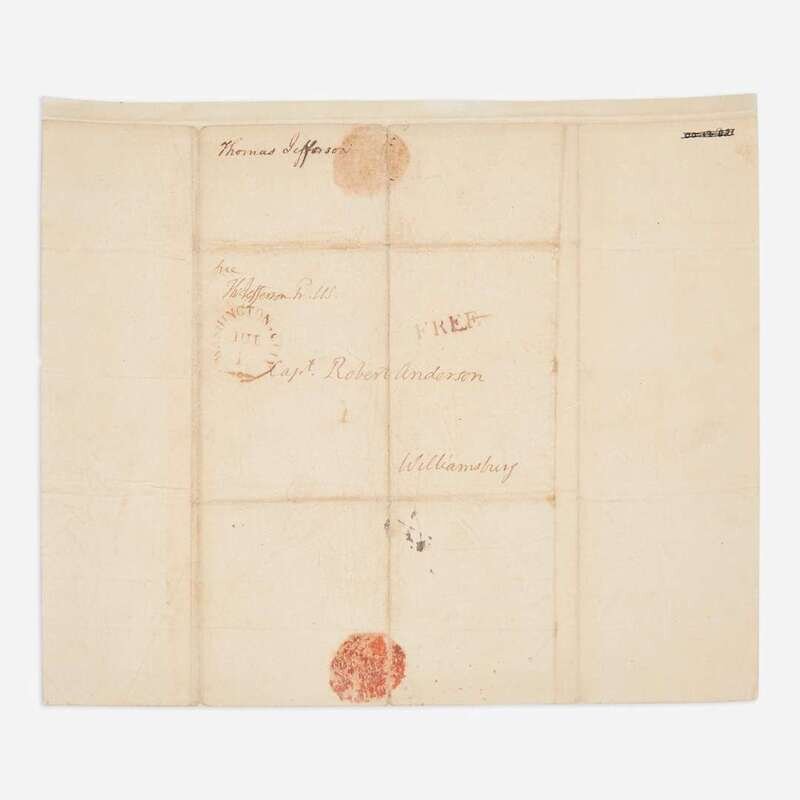 Thomas Jefferson
free
Th: Jefferson Pr. US.
WASHINGTON CITY
JUL
1
FREE
Capt. Robert Anderson
Williamsburg